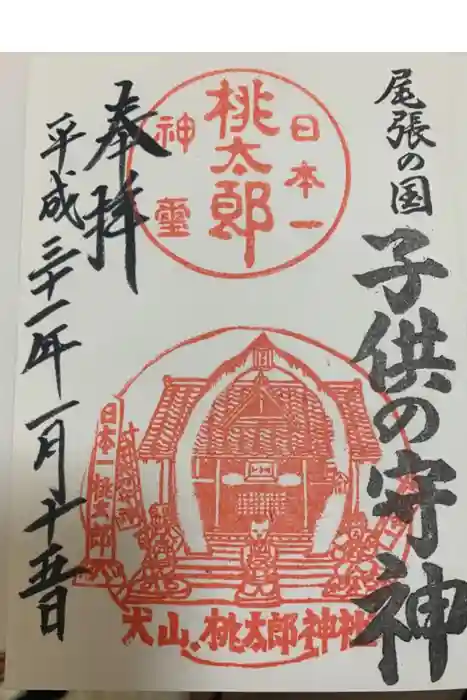 尾張の国
子供の守神
日本一
桃太郎
神霊
奉拝
平成三十一年一月十五日
日本一桃太郎
犬山桃太郎神社